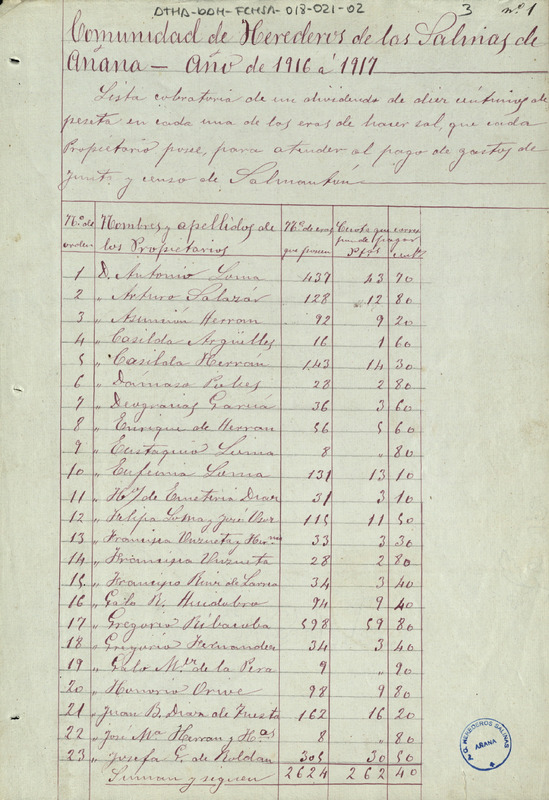 DTHA-DDH-FCHSA-018-021-02
3 nº 1
Comunidad de Herederos de las Salinas de
Añana — Año de 1916 á 1917
Lista cobratoria de un dividendo de diez céntimos de
peseta en cada una de las eras de hacer sal, que cada
Propietario posee, para atender al pago de gastos de
Junta y censo de Salmantón
Nº de orden Nombres y apellidos de los Propietarios Nº de eras que poseen Cuota que corresponde pagar Ptas cent.
1 D. Antonio Loma 437 43 70
2 " Arturo Salazár 128 12 80
3 " Asunción Herran 92 9 20
4 " Casilda Argüelles 16 1 60
5 " Casilda Herrán 143 14 30
6 " Damaso 28 2 80
7 " Deogracias García 36 3 60
8 " Enrique de Herran 56 5 60
9 " Eustaquio Loma 8 " 80
10 " Eufemia Loma 131 13 10
11 " Hº de Emeteria Diaz 31 3 10
12 " Felipa Loma y José 115 11 50
13 " Francisca Unzueta y Hnos 33 3 30
14 " Francisca Unzueta 28 2 80
15 " Francisco Ruiz de 34 3 40
16 " Galo R. Huidobro 94 9 40
17 " Gregorio Ribacoba 598 59 80
18 " Gregorio Fernandez 34 3 40
19 " Galo M. de la Pera 9 " 90
20 " Honorio Orive 98 9 80
21 " Juan B. Diaz de Tuesta 162 16 20
22 " Jose Mª Herran y Hªs 8 " 80
23 " Josefa G. de Roldán 305 30 50
Suman y siguen 2624 262 40
C. HEREDEROS SALINAS
AÑANA